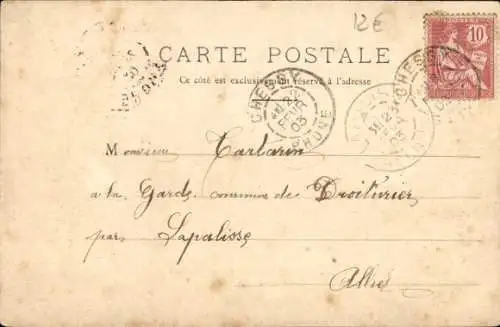 12€
CARTE POSTALE
Ce côté est exclusivement réservé à l'adresse
10
CHESSY
FEVR
03
RHONE
Monsieur Tartarin
a la Garde commune de Droiturier
par Lapalisse
Allier